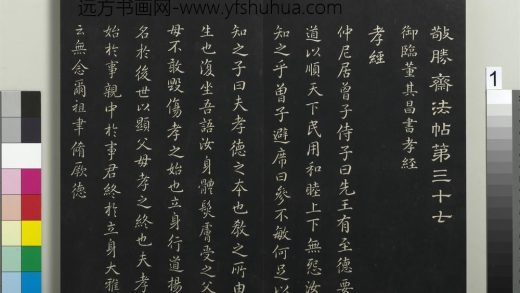 远方书画网-www.yfshuhua.com
敬勝齋法帖第三十七
御臨董其昌書孝經
孝經
仲尼居曾子侍子曰先王有至德要
道以順天下民用和睦上下無怨汝
知之乎曾子避席曰參不敏何足以
知之子曰夫孝德之本也教之所由
生也復坐吾語汝身體髮膚受之父
母不敢毀傷孝之始也立身行道揚
名於後世以顯父母孝之終也夫孝
始於事親中於事君終於立身大雅
云無念爾祖聿脩厥德
1